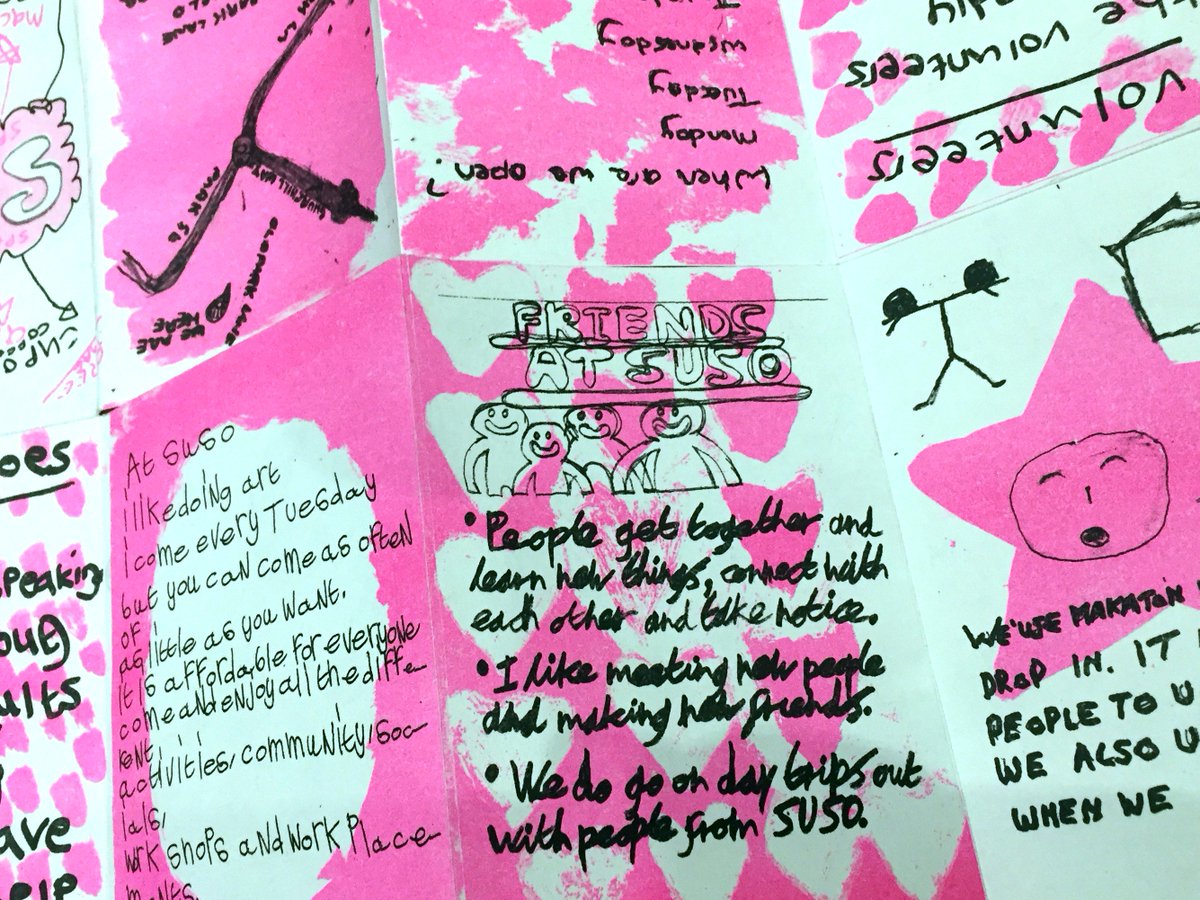 PARK LANE
PARK SQ
CHURCHILL WAY
OLD PARK LANE
WE ARE
HERE
CUP O
When are we open?
Monday
Tuesday
Wednesday
Volunteers
the volunteers
oes
speaking
oug
ults
ave
elp
At SUSO
I like doing art
I come every Tuesday
but you can come as often
of
as little as you want.
It is affordable for everyone
come and enjoy all the diffe-
rent
activities, community, soc-
ials,
work shops and work place-
ments.
FRIENDS
AT SUSO
• People get together and
learn new things, connect with
each other and take notice.
• I like meeting new people
and making new friends.
• We do go on day trips out
with people from SUSO.
WE USE MAKATON
DROP IN. IT
PEOPLE TO U
WE ALSO U
WHEN WE